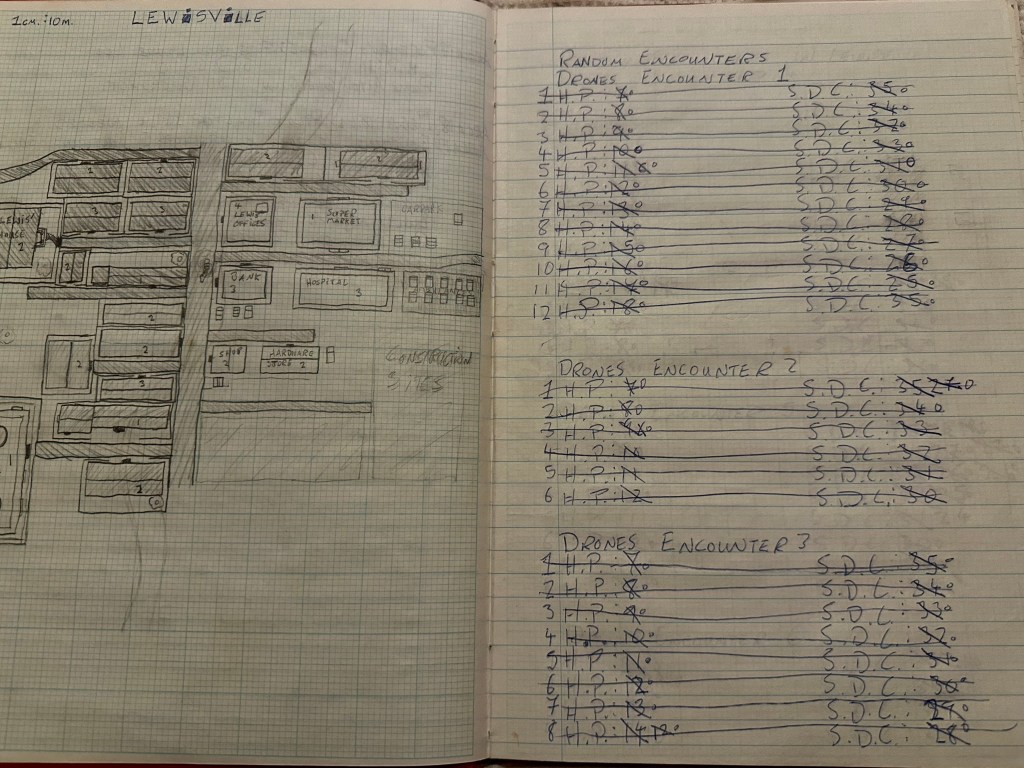 1cm.:10m.
LEWISVILLE
2
2
2
2
3
3
LEWIS'
2
LEWIS
OFFICES
1 SUPER
MARKET
2
BANK
3
HOSPITAL
3
2
2
2
3
2
HARDWARE
STORE 2
CONSTRUCTION
SITES
1
2
RANDOM ENCOUNTERS
DRONES ENCOUNTER 1
1 H.P.: 7 0 S.D.C.: 35 0
2 H.P.: 8 0 S.D.C.: 34 0
3 H.P.: 9 0 S.D.C.: 0
4 H.P.: 10 0 S.D.C.: 0
5 H.P.: 11 0 S.D.C.: 0
6 H.P.: 12 0 S.D.C.: 30 0
7 H.P.: 13 0 S.D.C.: 29 0
8 H.P.: 14 0 S.D.C.: 0
9 H.P.: 15 0 S.D.C.: 27 0
10 H.P.: 16 0 S.D.C.: 26 0
11 H.P.: 17 0 S.D.C.: 25 0
12 H.P.: 18 0 S.D.C.: 0
DRONES ENCOUNTER 2
1 H.P.: 7 0 S.D.C.: 35 0
2 H.P.: 0 S.D.C.: 34 0
3 H.P.: 0 S.D.C.: 33
4 H.P.: S.D.C.: 32
5 H.P.: 11 S.D.C.: 31
6 H.P.: 12 S.D.C.: 30
DRONES ENCOUNTER 3
1 H.P.: 7 0 S.D.C.: 35 0
2 H.P.: 8 0 S.D.C.: 34 0
3 H.P.: 9 0 S.D.C.: 33 0
4 H.P.: 10 0 S.D.C.: 32 0
5 H.P.: 11 0 S.D.C.: 31 0
6 H.P.: 12 0 S.D.C.: 30 0
7 H.P.: 13 0 S.D.C.: 29 0
8 H.P.: 14 0 S.D.C.: 28 0